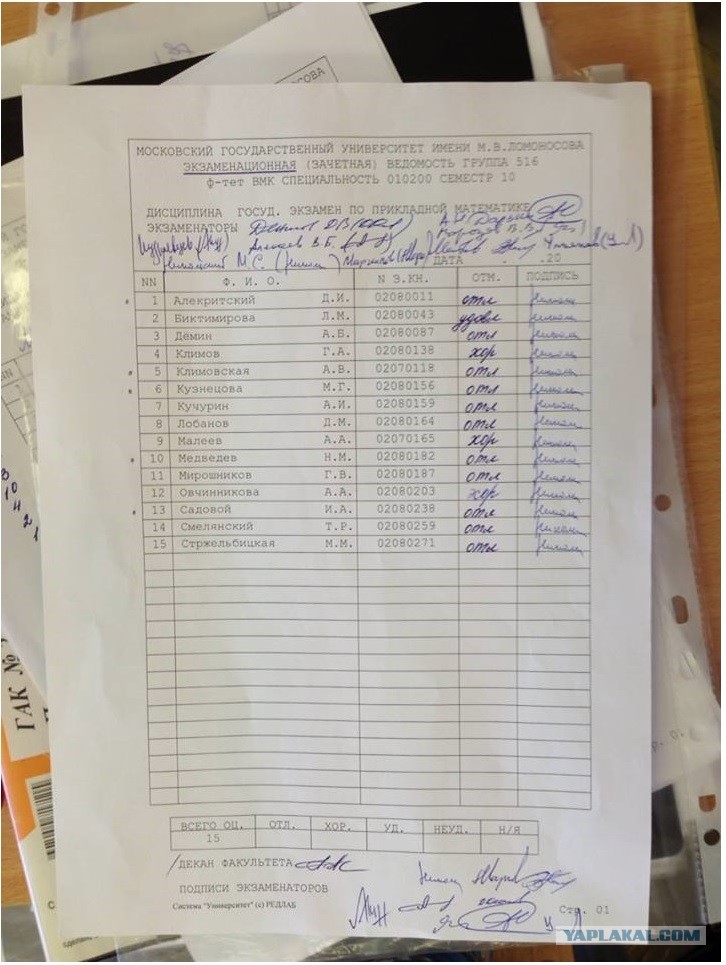 ОСОВА
МОСКОВСКИЙ ГОСУДАРСТВЕННЫЙ УНИВЕРСИТЕТ ИМЕНИ М.В.ЛОМОНОСОВА
ЭКЗАМЕНАЦИОННАЯ (ЗАЧЕТНАЯ) ВЕДОМОСТЬ ГРУППА 516
ф-тет ВМК СПЕЦИАЛЬНОСТЬ 010200 СЕМЕСТР 10
ДИСЦИПЛИНА ГОСУД. ЭКЗАМЕН ПО ПРИКЛАДНОЙ МАТЕМАТИКЕ
ЭКЗАМЕНАТОРЫ
Алексеев В.Б.
М.С. ДАТА . .20
NN Ф. И. О. N Э.КН. ОТМ. ПОДПИСЬ
1 Алекритский Д.И. 02080011 отл
2 Биктимирова Л.М. 02080043 удовл
3 Дёмин А.Б. 02080087 отл
4 Климов Г.А. 02080138 хор
5 Климовская А.В. 02070118 отл
6 Кузнецова М.Г. 02080156 отл
7 Кучурин А.И. 02080159 отл
8 Лобанов Д.М. 02080164 отл
9 Малеев А.А. 02070165 хор
10 Медведев Н.М. 02080182 отл
11 Мирошников Г.В. 02080187 отл
12 Овчинникова А.А. 02080203 хор
13 Садовой И.А. 02080238 отл
14 Смелянский Т.Р. 02080259 отл
15 Стржельбицкая М.М. 02080271 отл
ГАК №
ВСЕГО ОЦ. ОТЛ. ХОР. УД. НЕУД. Н/Я
15
/ДЕКАН ФАКУЛЬТЕТА
ПОДПИСИ ЭКЗАМЕНАТОРОВ
Система "Университет" (с) РЕДЛАБ
Стр. 01
YAPLAKAL.COM